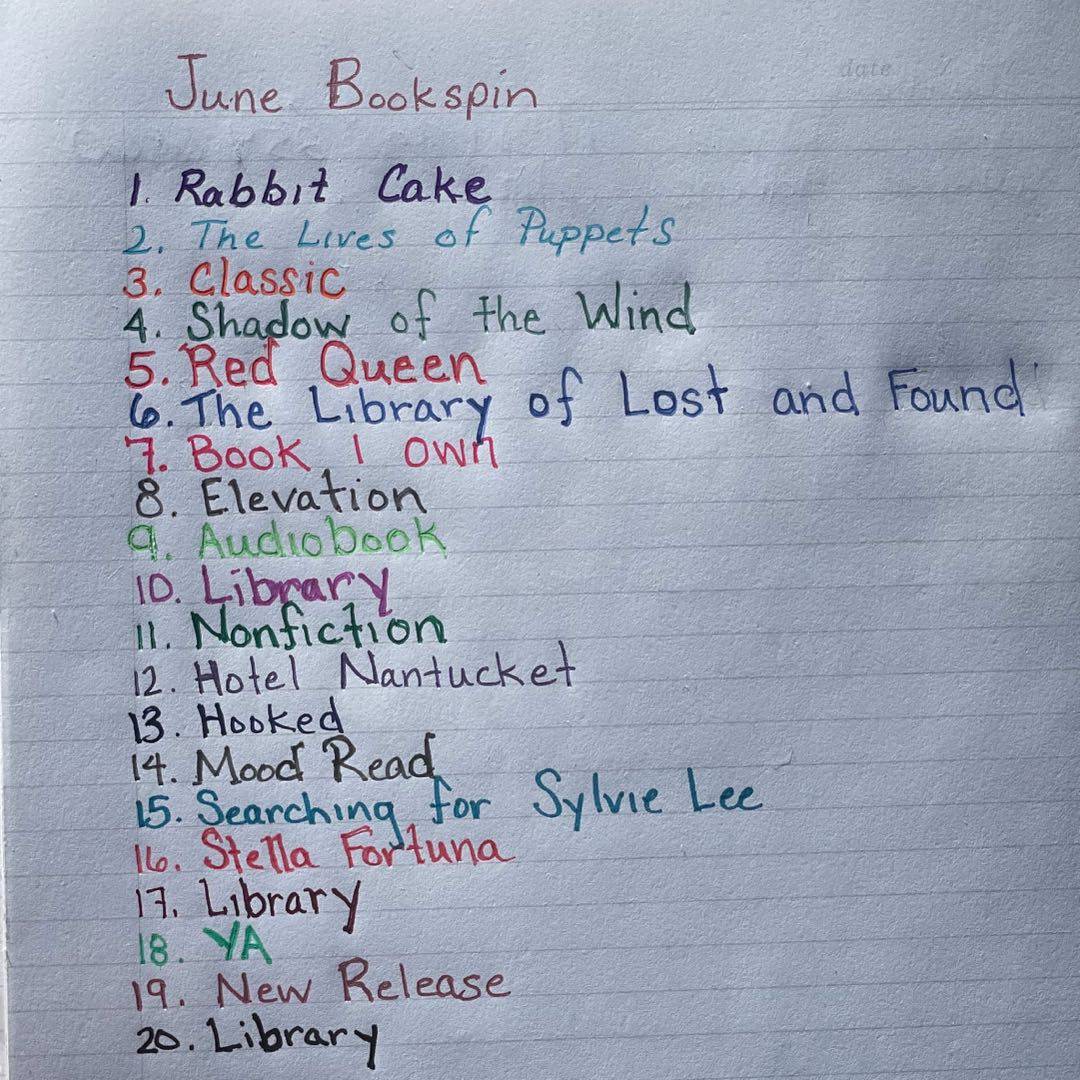 date
June Bookspin
1. Rabbit Cake
2. The Lives of Puppets
3. Classic
4. Shadow of the Wind
5. Red Queen
6. The Library of Lost and Found
7. Book I own
8. Elevation
9. Audiobook
10. Library
11. Nonfiction
12. Hotel Nantucket
13. Hooked
14. Mood Read
15. Searching for Sylvie Lee
16. Stella Fortuna
17. Library
18. YA
19. New Release
20. Library